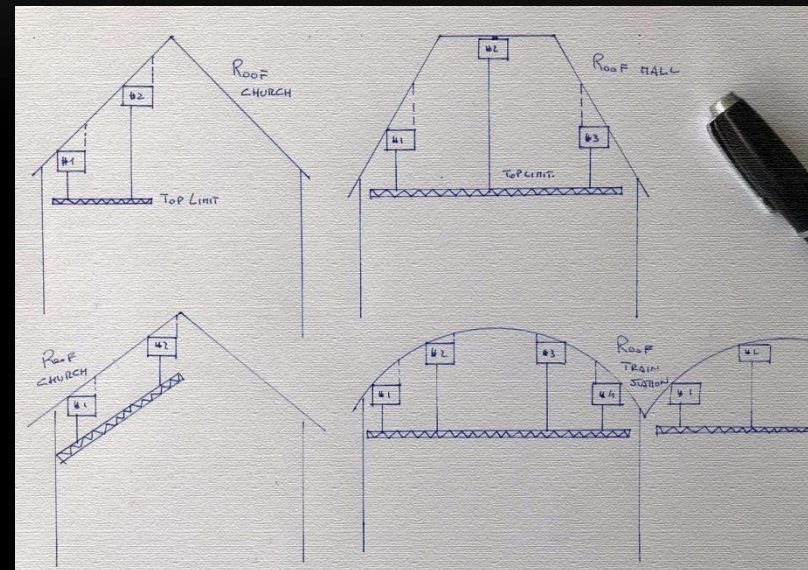 ROOF
CHURCH
#2
#1
TOP LIMIT
#2
ROOF MALL
#1
#3
TOP LIMIT.
ROOF
CHURCH
#2
#1
#2
#3
#1
#4
ROOF
TRAIN
STATION
#2
#1